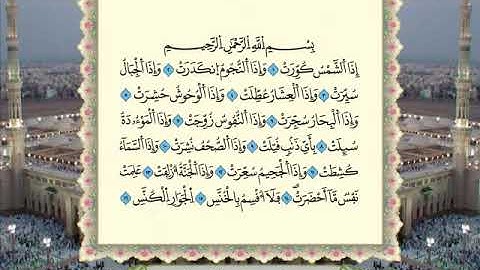 بِسْمِ اللَّهِ الرَّحْمَٰنِ الرَّحِيمِ
إِذَا الشَّمْسُ كُوِّرَتْ ١ وَإِذَا النُّجُومُ انكَدَرَتْ ٢ وَإِذَا الْجِبَالُ
سُيِّرَتْ ٣ وَإِذَا الْعِشَارُ عُطِّلَتْ ٤ وَإِذَا الْوُحُوشُ حُشِرَتْ ٥
وَإِذَا الْبِحَارُ سُجِّرَتْ ٦ وَإِذَا النُّفُوسُ زُوِّجَتْ ٧ وَإِذَا الْمَوْءُۥدَةُ
سُئِلَتْ ٨ بِأَيِّ ذَنبٍ قُتِلَتْ ٩ وَإِذَا الصُّحُفُ نُشِرَتْ ١٠ وَإِذَا السَّمَاءُ
كُشِطَتْ ١١ وَإِذَا الْجَحِيمُ سُعِّرَتْ ١٢ وَإِذَا الْجَنَّةُ أُزْلِفَتْ ١٣ عَلِمَتْ
نَفْسٌ مَّا أَحْضَرَتْ ١٤ فَلَا أُقْسِمُ بِالْخُنَّسِ ١٥ الْجَوَارِ الْكُنَّسِ ١٦